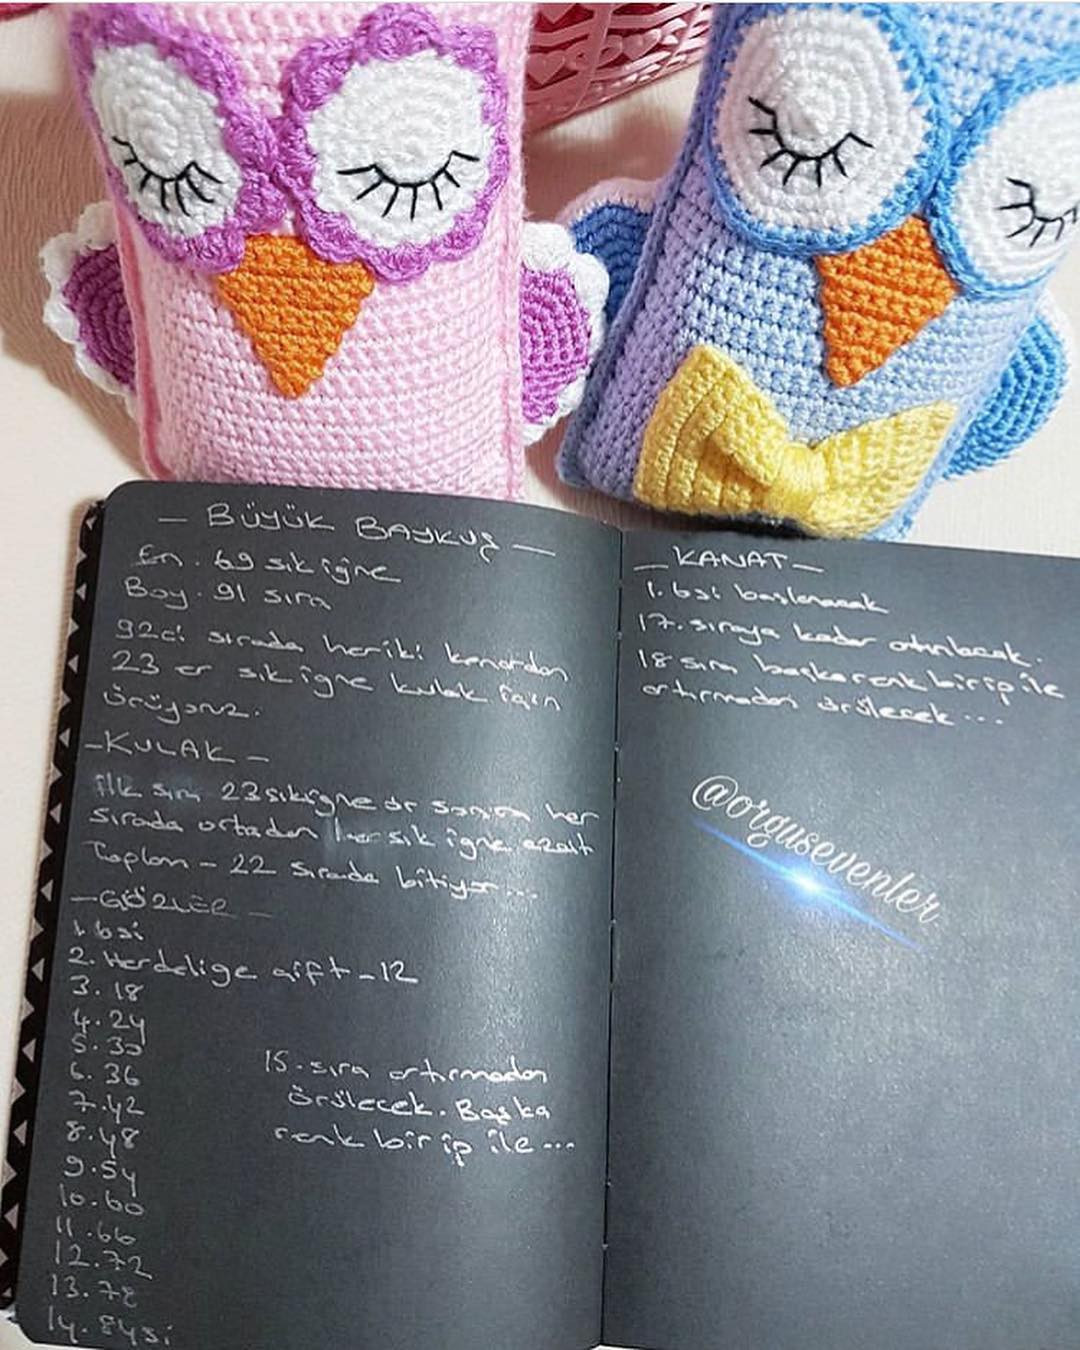 — BÜYÜK BAYKUŞ —
En. 69 sık iğne
Boy. 91 sıra
92ci sırada heriki kenardan
23 er sık iğne kulak için
örüyoruz.
— KULAK —
ilk sıra 23 sık iğne ör sonra her
sırada ortadan 1 er sık iğne azalt
Toplam – 22 sırada bitiyor...
— GÖZLER —
1. 6si
2. Her deliğe çift – 12
3. 18
4. 24
5. 30
6. 36
7. 42
8. 48
9. 54
10. 60
11. 66
12. 72
13. 78
14. 84si
15. sıra artırmadan
örülecek. Başka
renk bir ip ile ...
— KANAT —
1. 6si başlanacak
17. sıraya kadar artırılacak.
18 sıra başka renk bir ip ile
artırmadan örülecek ...
@orgusevenler